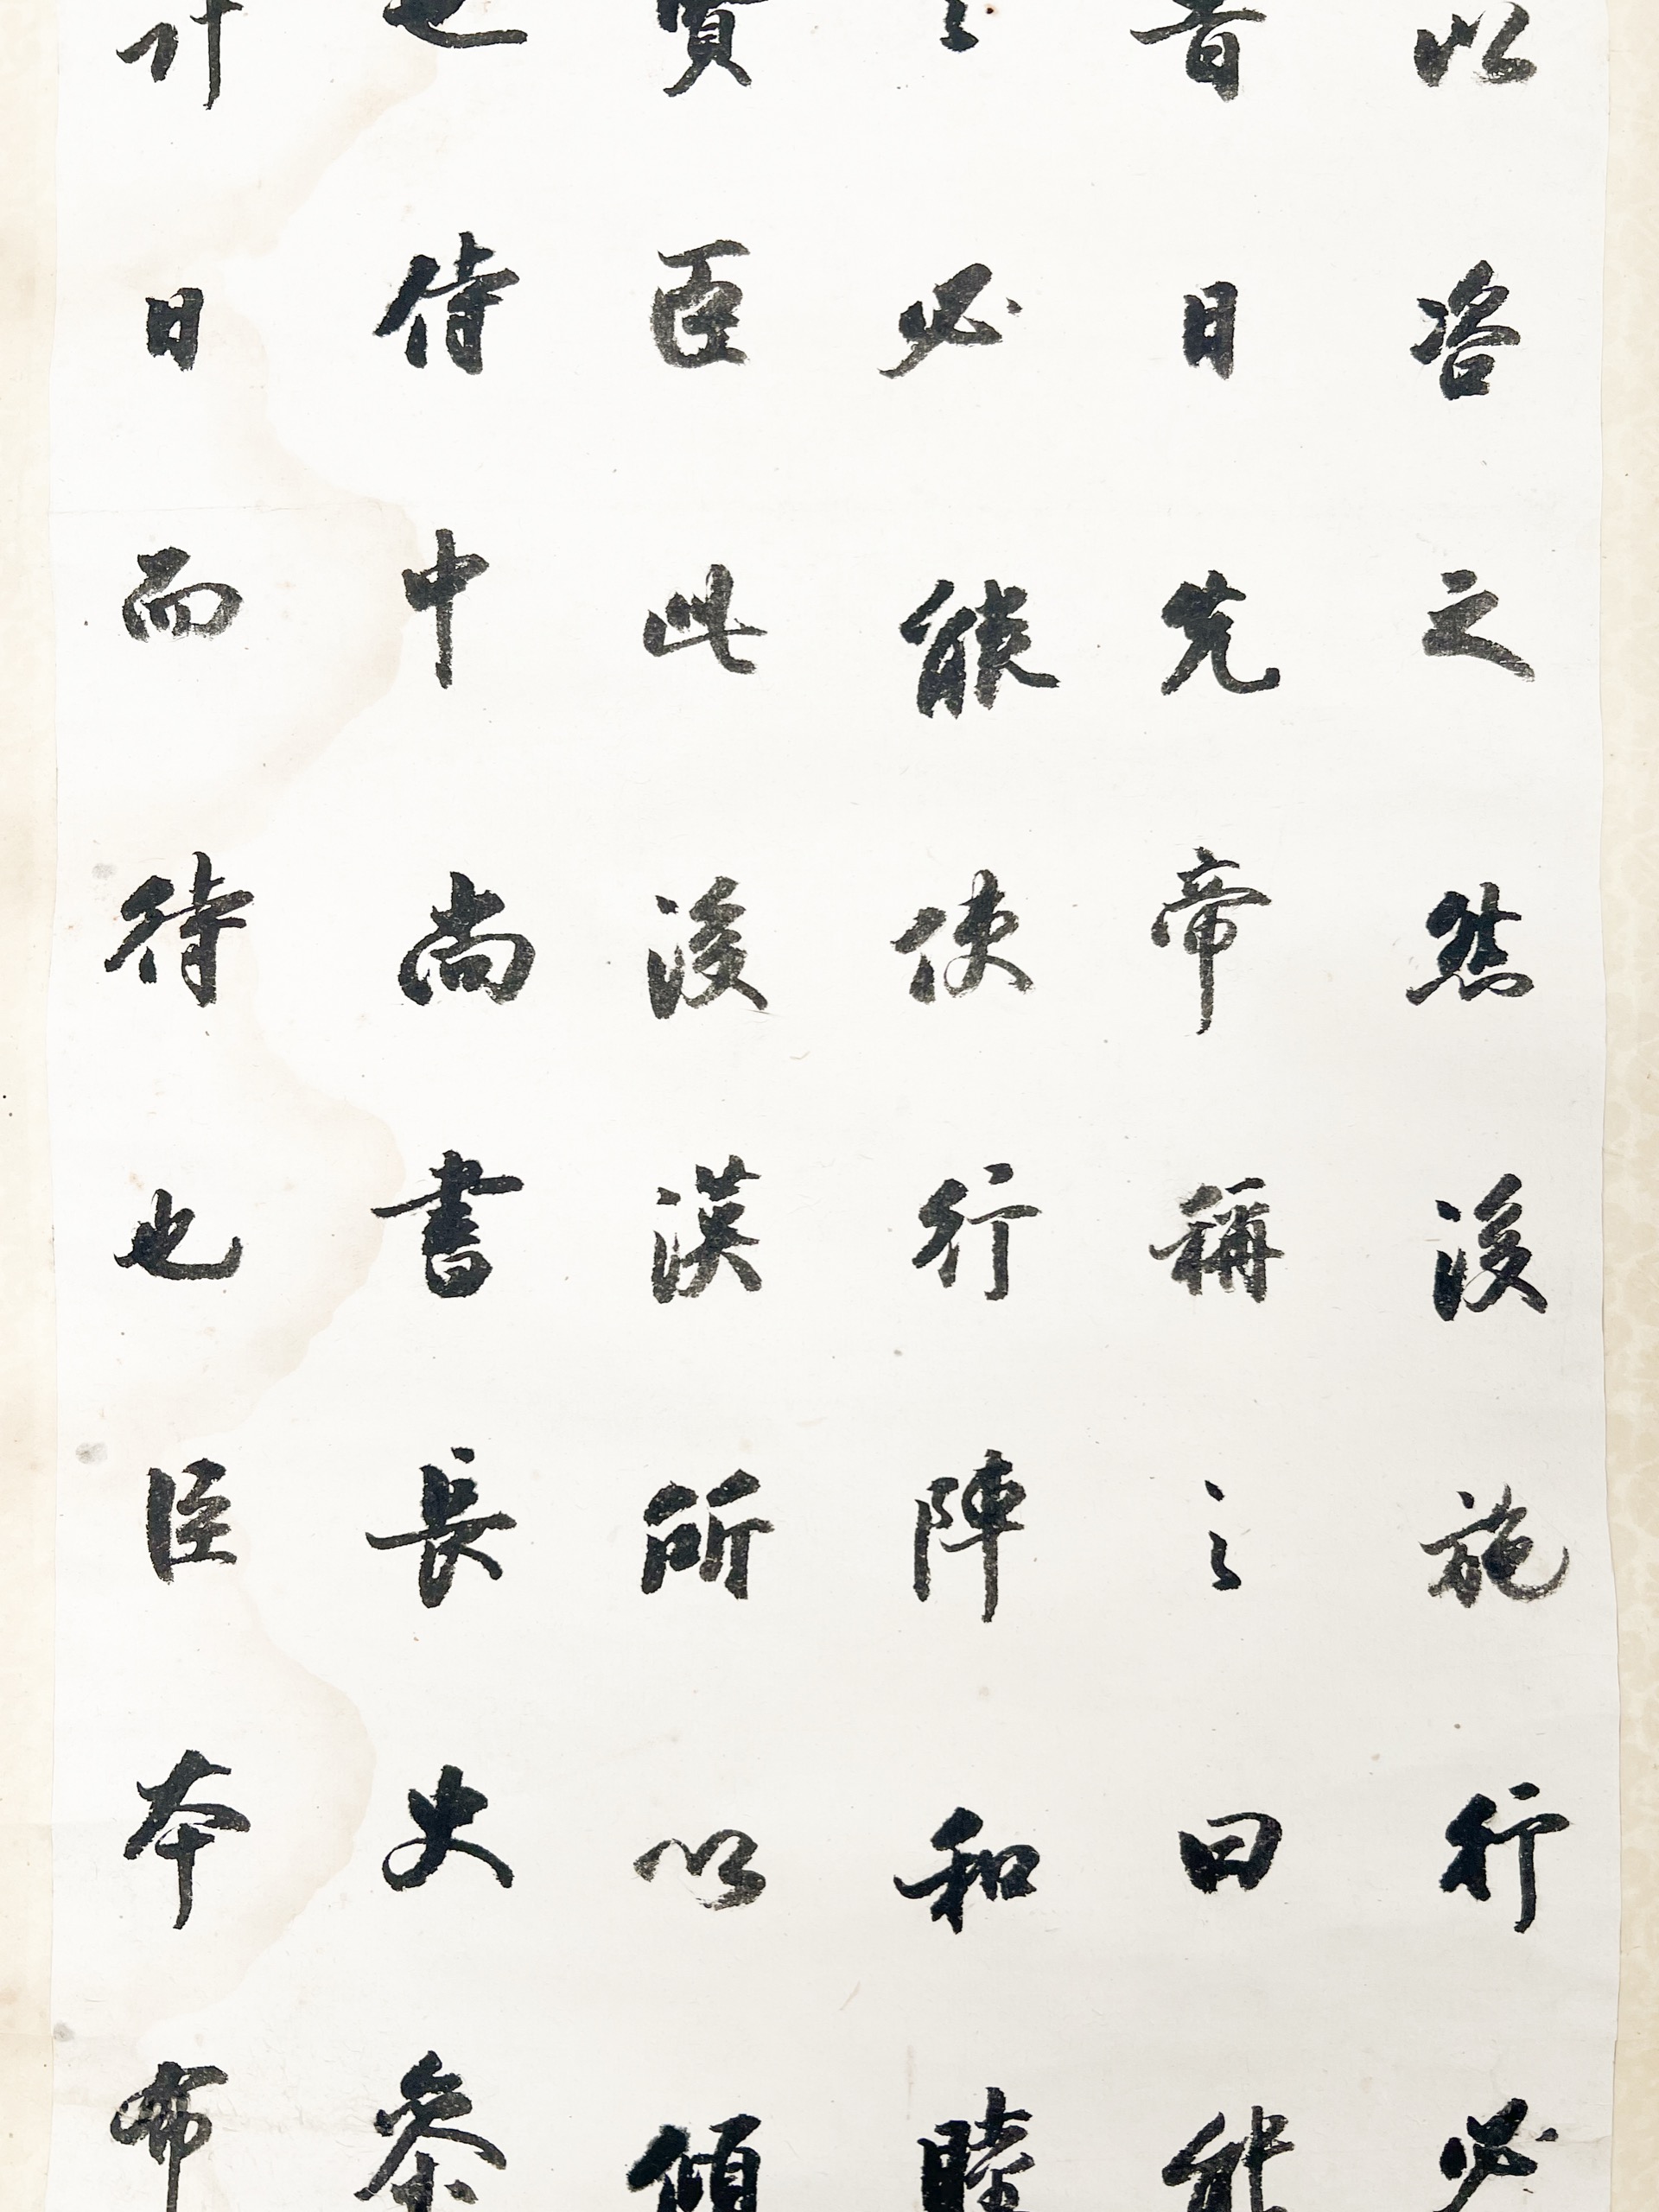 以咨之然後施行必
昔日先帝稱之曰能
之必能使行陣和睦
賢臣此後漢所以傾
也侍中尚書長史參
計日而待也臣本布